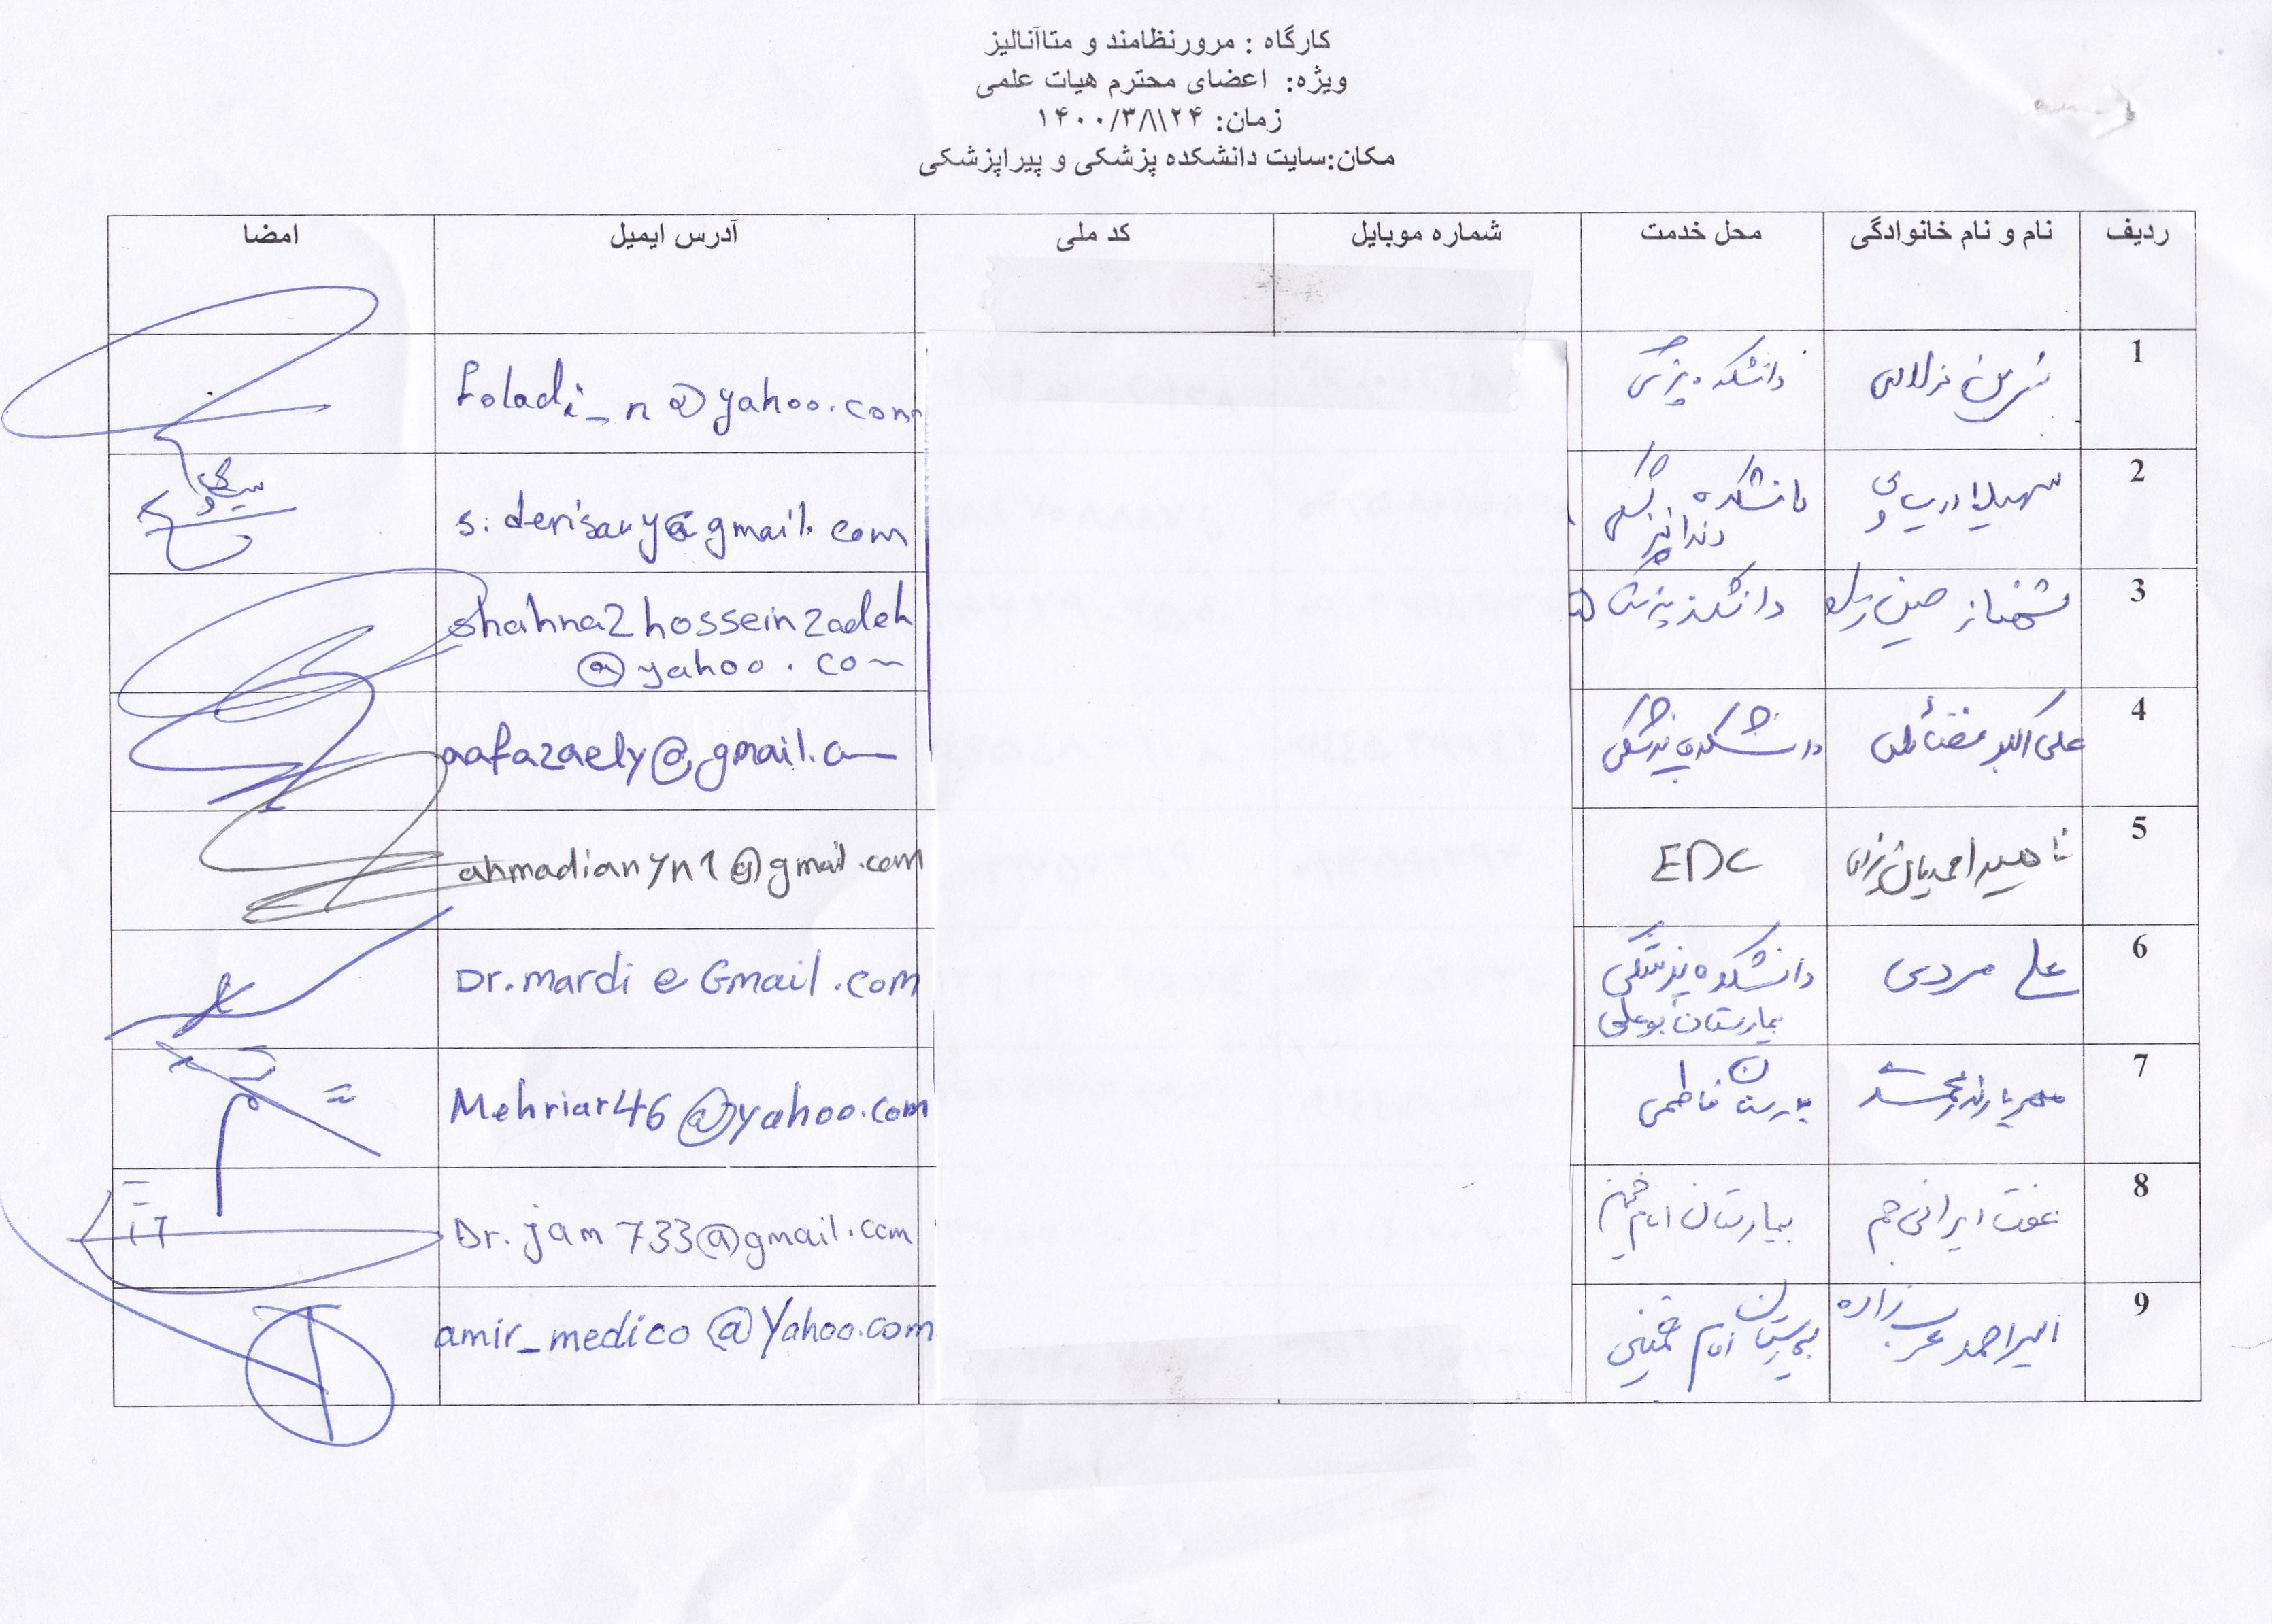 کارگاه : مرورنظامند و متاآنالیز
ویژه: اعضای محترم هیات علمی
مکان:سایت دانشکده پزشکی و پیراپزشکی
ردیف نام و نام خانوادگی محل خدمت شماره موبایل کد ملی آدرس ایمیل امضا
1 نسرین فولادی دانشکده پزشکی foladi_n@yahoo.com
2 سهیلا دریساوی دانشکده دندانپزشکی s.derisavy@gmail.com
3 شهناز حسین زاده دانشکده پزشکی shahnazhosseinzadeh
@yahoo.com
4 علی اکبر فضائلی دانشکده پزشکی aafazaely@gmail.com
5 ناهید احمدیان EDC ahmadianyn1@gmail.com
6 علی مردی دانشکده پزشکی Dr.mardi@Gmail.com
بیمارستان بوعلی
7 بیمارستان فاطمی Mehriar46@yahoo.com
8 عفت ایرانی جم بیمارستان امام خمینی Dr.jam733@gmail.com
9 امیراحمد عرب زاده بیمارستان امام خمینی amir_medico@Yahoo.com